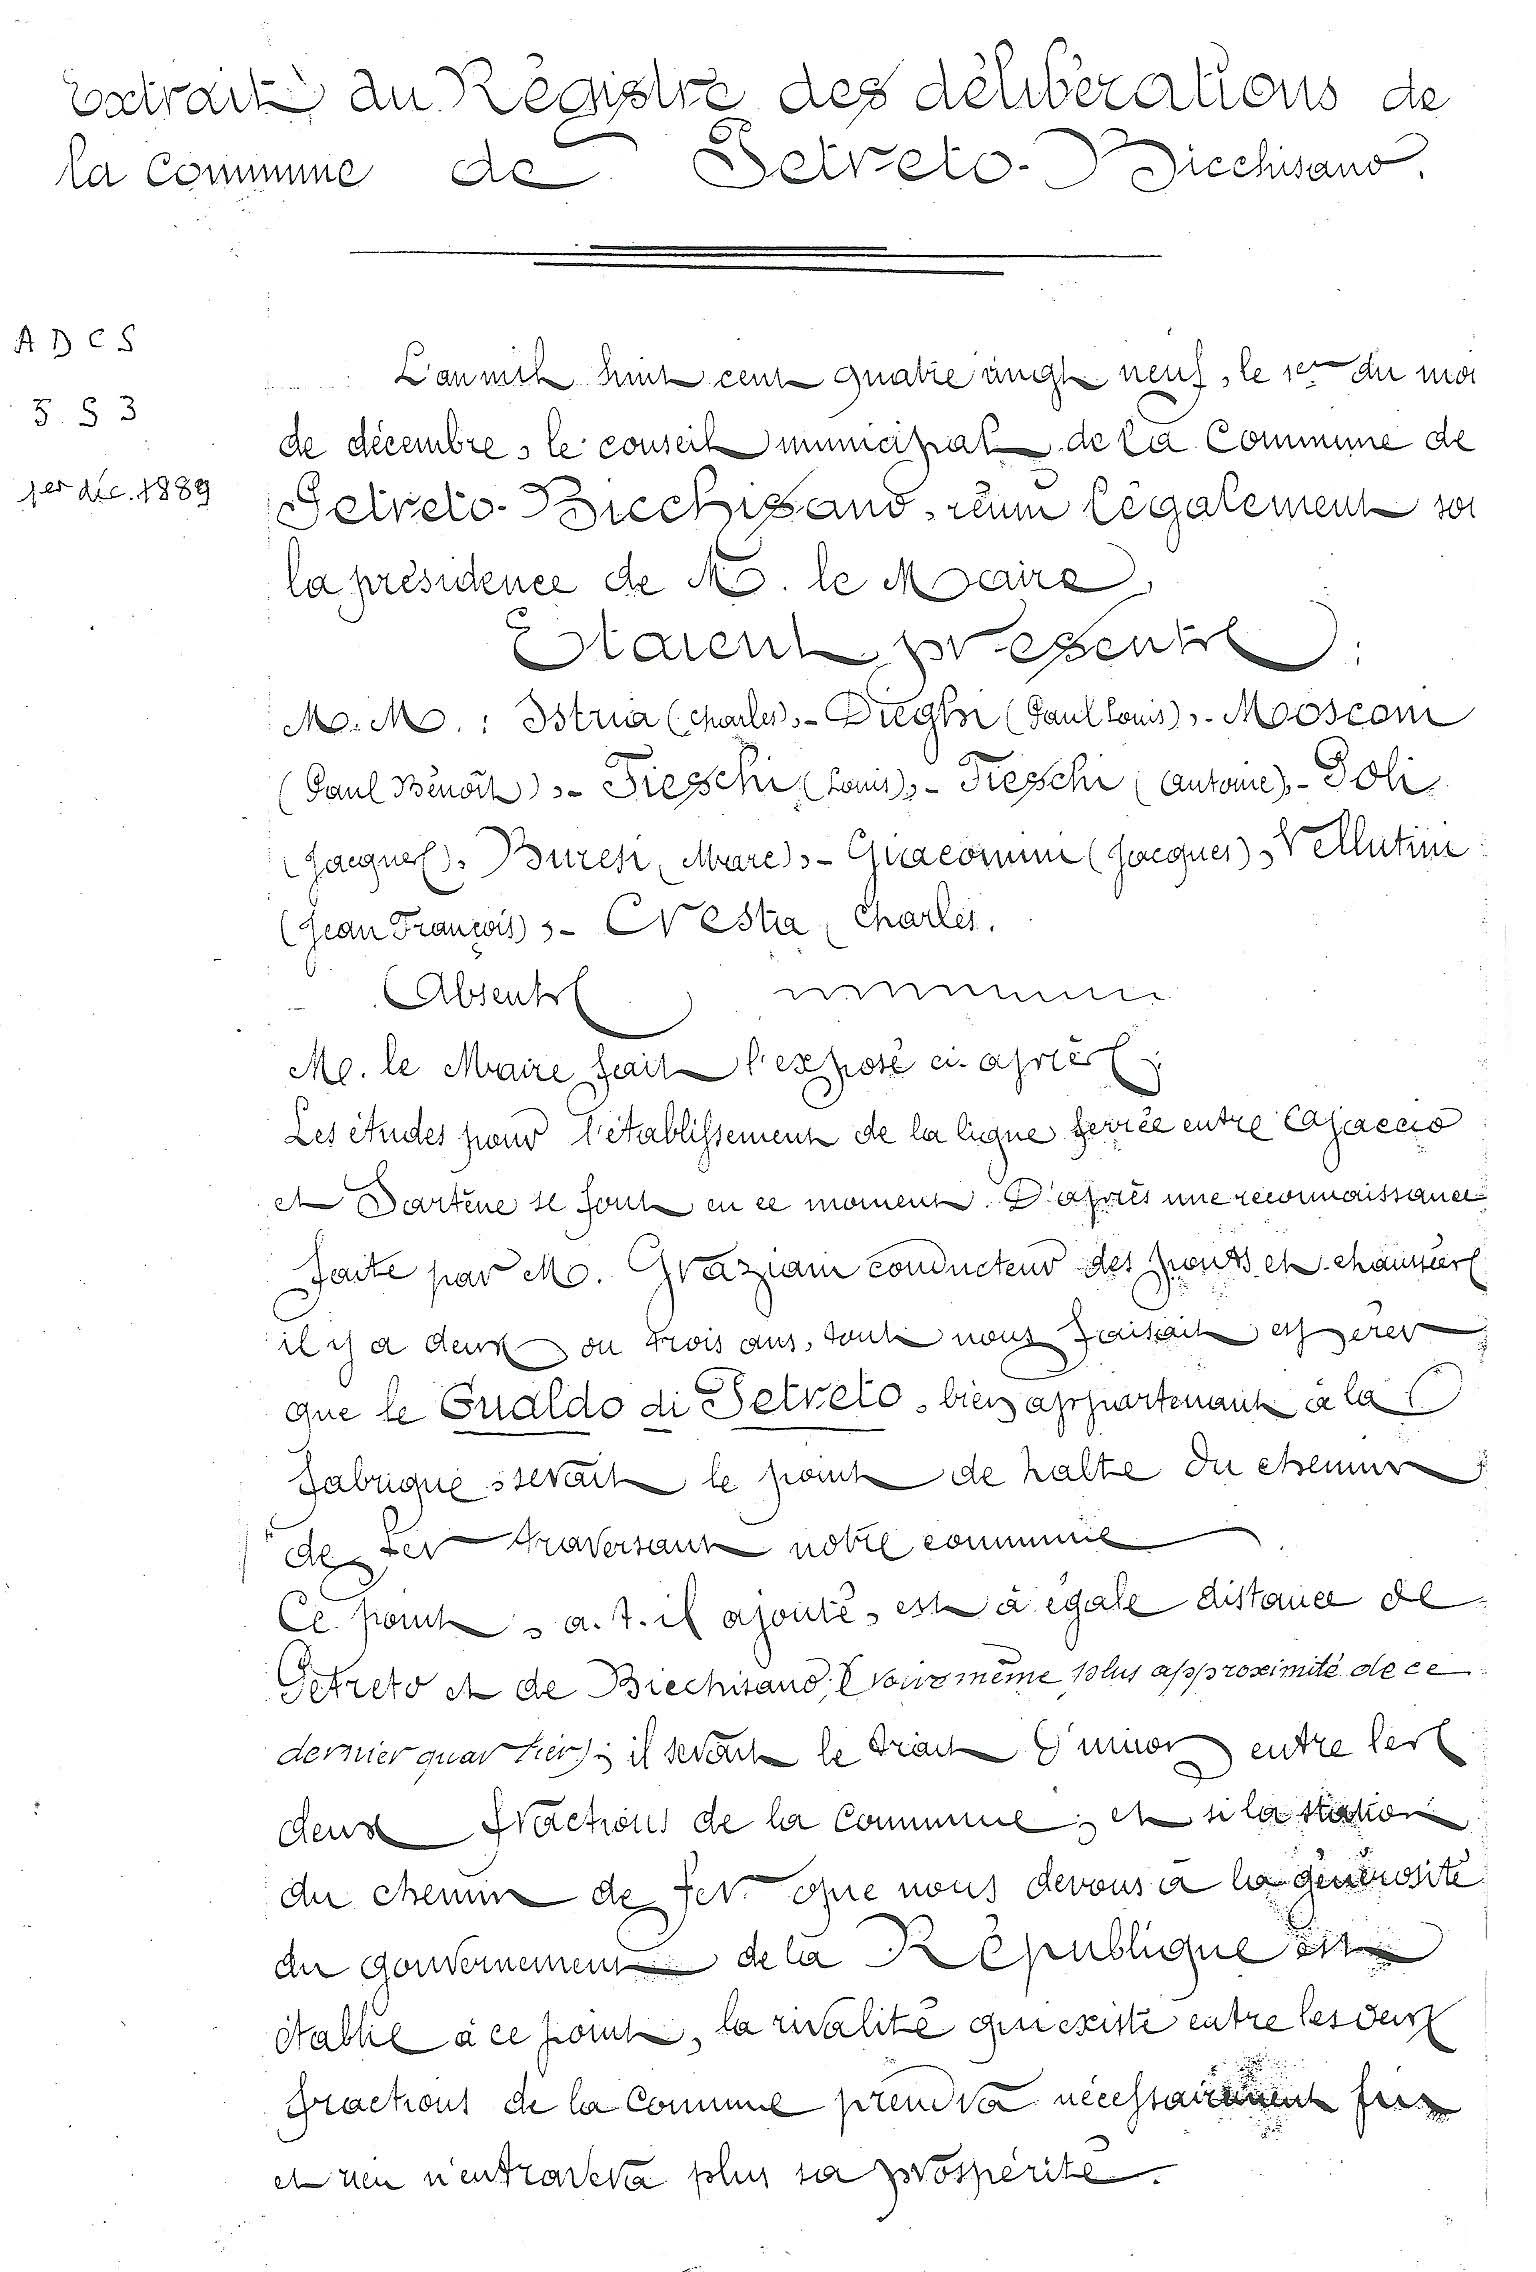 Extrait du Régistre des délibérations de
la Commune de Petreto-Bicchisano.
A D C S
5 S 3
1er déc. 1889
L'an mil huit cent quatre vingt neuf, le 1er du moi
de décembre, le conseil municipal de la Commune de
Petreto-Bicchisano, réuni légalement sou
la présidence de M. le Maire,
Etaient présents :
M. M. : Istria (Charles), - Dieghi (Paul Louis), - Mosconi
(Paul Benoît), - Fieschi (Louis), - Fieschi (Antoine), - Poli
(Jacques), Buresi (Marc), - Giacomini (Jacques), Vellutini
(Jean François), - Cresta (Charles.
Absents
M. le Maire fait l'exposé ci-après :
Les études pour l'établissement de la ligne ferrée entre Ajaccio
et Sartène se font en ce moment. D'après une reconnaissance
faite par M. Graziani conducteur des ponts et chaussées
il y a deux ou trois ans, tout nous faisait espérer
que le Gualdo di Petreto, bien appartenant à la
fabrique, serait le point de halte du chemin
de fer traversant notre commune
Ce point, a.t.il ajouté, est à égale distance de
Petreto et de Bicchisano, (voire même plus approximité de ce
dernier quartier); il serait le trait d'union entre les
deux fractions de la Commune; et si la station
du chemin de fer que nous devons à la générosité
du gouvernement de la République est
établie à ce point, la rivalité qui existe entre les deux
fractions de la Commune prendra nécessairement fin
et rien n'entravera plus sa prospérité.